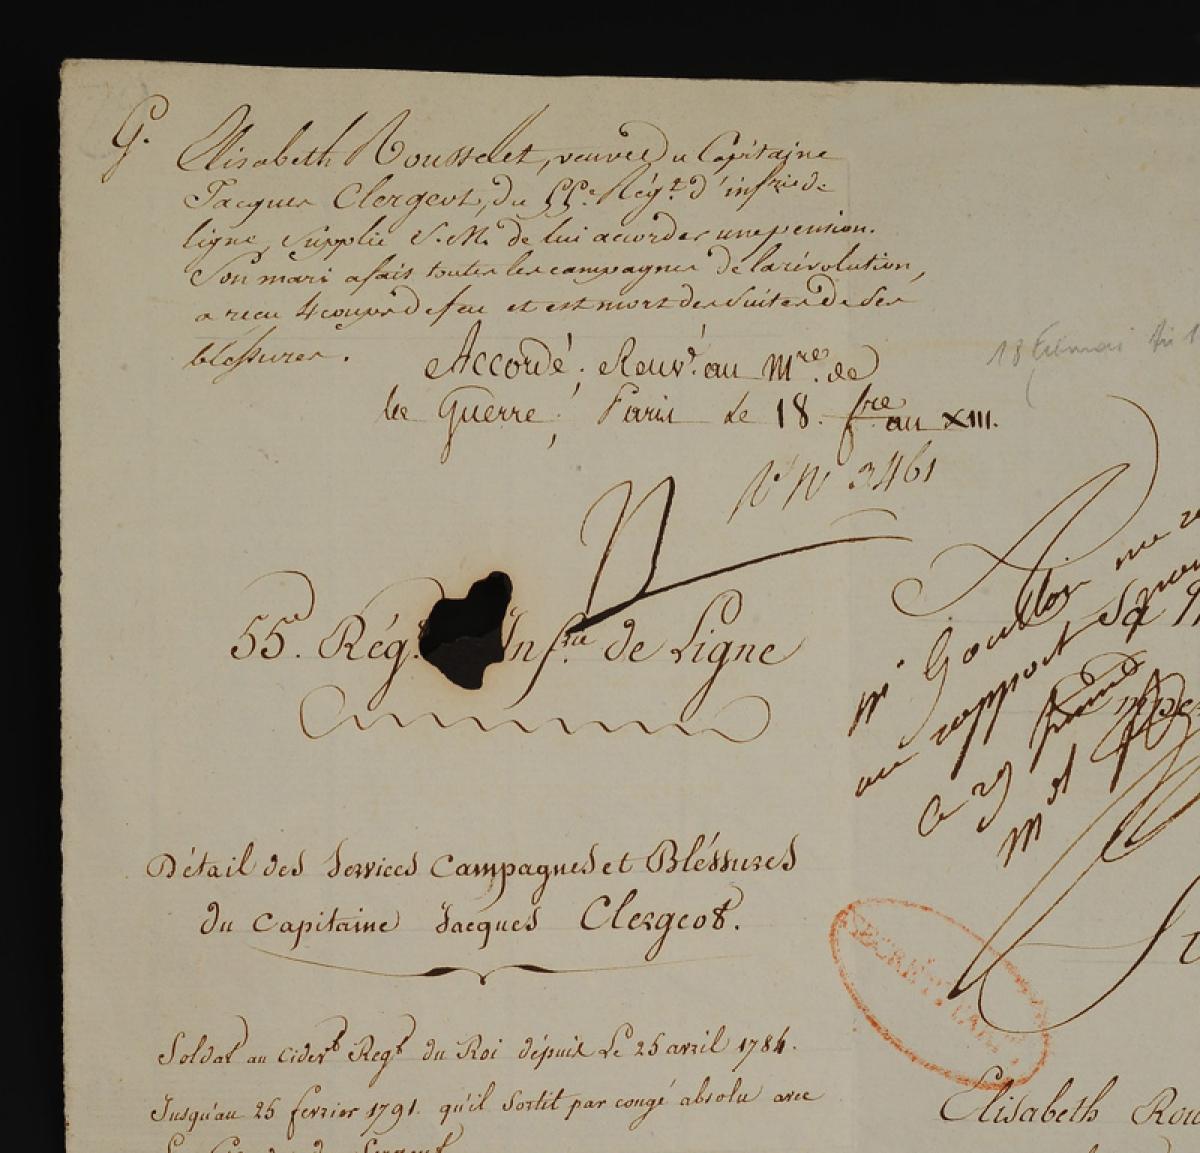 G. Elisabeth Rousselet, veuve du Capitaine
Jacques Clergeot, du 55e. Régt. d'infrie de
ligne, supplie S. M. de lui accorder une pension.
Son mari a fait toutes les campagnes de la révolution,
a reçu 4 coups de feu et est mort des suites de ses
blessures.
Accordé. Renv. au Mre. de
la Guerre, Paris le 18. fre an XIII.
No 3461
18
N
55e. Régt. Infrie de Ligne
mr Goulloir me
un rapport, Sa
ce 29
Détail des Services Campagnes et Bléssures
du Capitaine Jacques Clergeot.
SECRET
Soldat au cidert Regt du Roi dépuis Le 25 avril 1784.
Jusqu'au 25 fevrier 1791. qu'il Sortit par congé absolu avec
Sergent
Elisabeth Rou